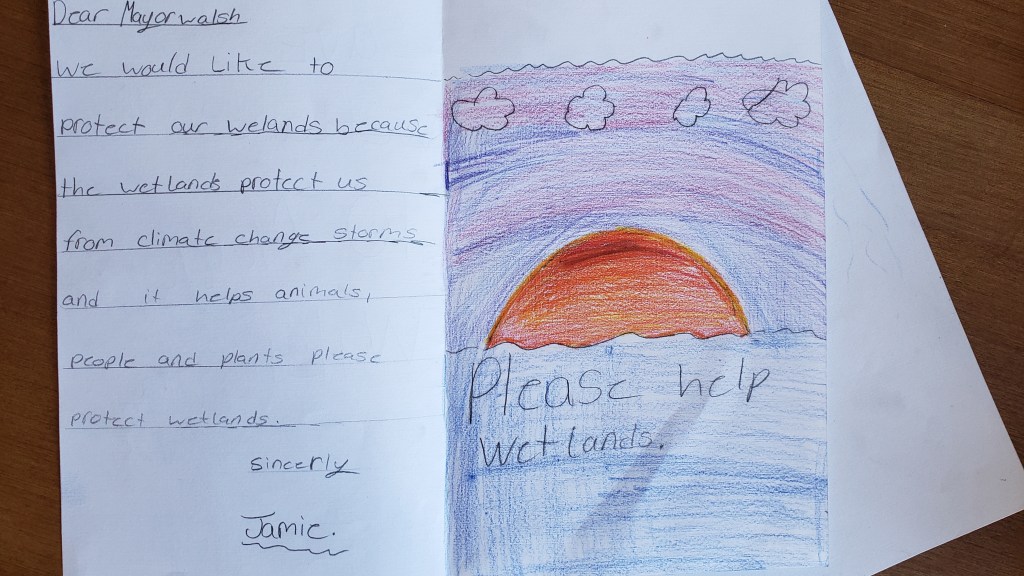 Dear Mayorwalsh
We would like to
protect our welands because
the wetlands protect us
from climate change storms
and it helps animals,
people and plants please
protect wetlands.
sincerly
Jamie.
Please help
wetlands.